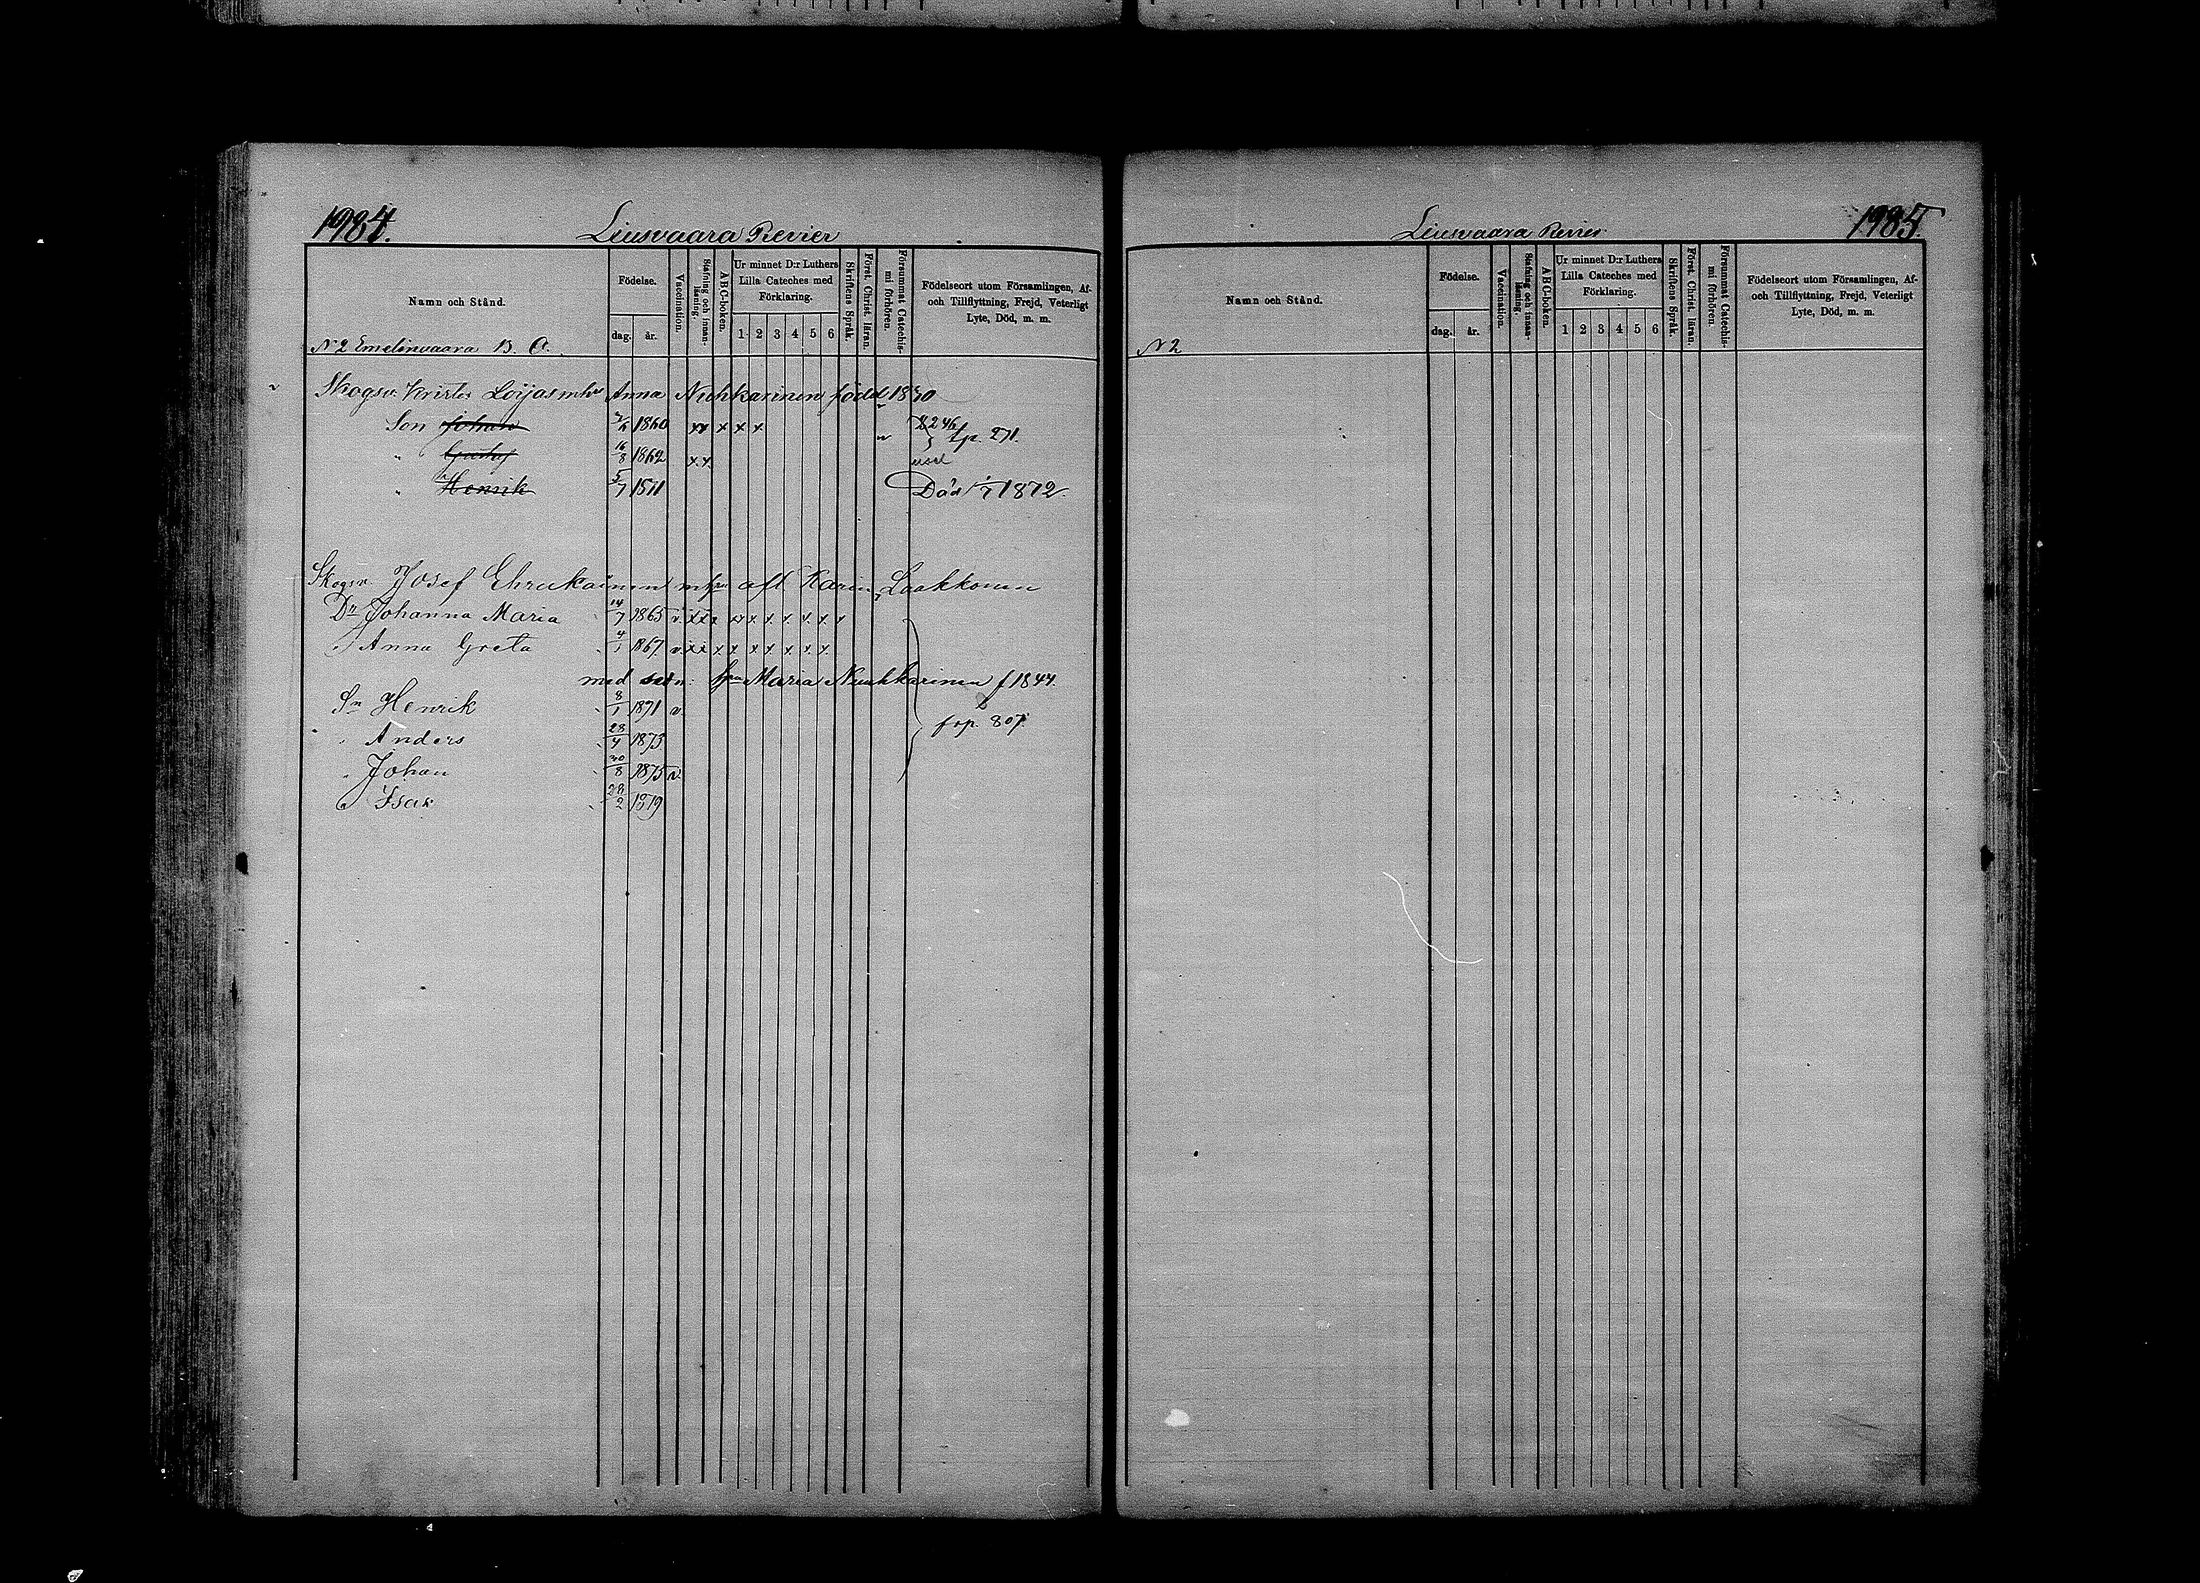 1984.
Liusvaara Revier
Namn och Stånd.
Födelse.
dag. år.
Vaccination.
Stafning och innanläsning.
ABC-boken.
Ur minnet D:r Luthers Lilla Cateches med Förklaring.
1 2 3 4 5 6
Skriftens Språk.
Först. Christ. läran.
Försummat Catechismi förhören.
Födelseort utom Församlingen, Af- och Tillflyttning, Frejd, Veterligt Lyte, Död, m. m.
N 2 Emelinvaara B. O.
Skogsv. Krister Loijas mhu Anna Nuhkarinen född 1830
Son Johan 1860 xx x x x 246 tp. 271.
" Gustaf 16/8 1862 x x
" Henrik 5/7 1871 Död 1/7 1872.
Skogsv. Josef Ehrukainen m hru afl. Karin Laakkonen
Dr Johanna Maria 14/7 1865 v. x x x x x x x x x x
" Anna Greta 4/1 1867 v. x x x x x x x x x
med hru Maria Nuuhkarinen f 1844.
Sn Henrik 8/1 1871 v. frp. 807.
" Anders 28/4 1873
" Johan 30/8 1875 v.
" Isak 28/2 1879
1985.
Liusvaara Revier
Namn och Stånd.
Födelse.
dag. år.
Vaccination.
Stafning och innanläsning.
ABC-boken.
Ur minnet D:r Luthers Lilla Cateches med Förklaring.
1 2 3 4 5 6
Skriftens Språk.
Först. Christ. läran.
Försummat Catechismi förhören.
Födelseort utom Församlingen, Af- och Tillflyttning, Frejd, Veterligt Lyte, Död, m. m.
N 2